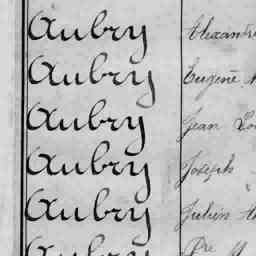 Aubry Alexandre
Aubry Eugène
Aubry Jean
Aubry Joseph
Aubry Julien
Aubry